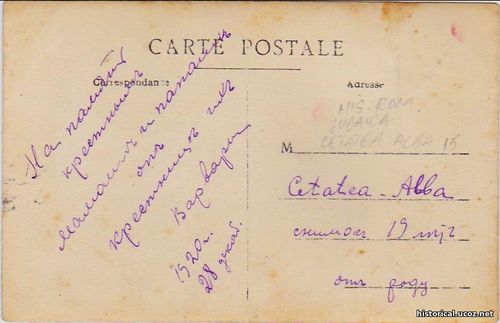 CARTE POSTALE
Correspondance
Adresse
На память
крестнымъ
мамашѣ и папашѣ
отъ
крестницъ ихъ
Варвары
1920 г.
28 декаб.
MIS. ROM.
JUDAICA
CETATEA ALBA 15
M
Cetatea-Alba
снимокъ 19
отъ роду
historical.ucoz.net